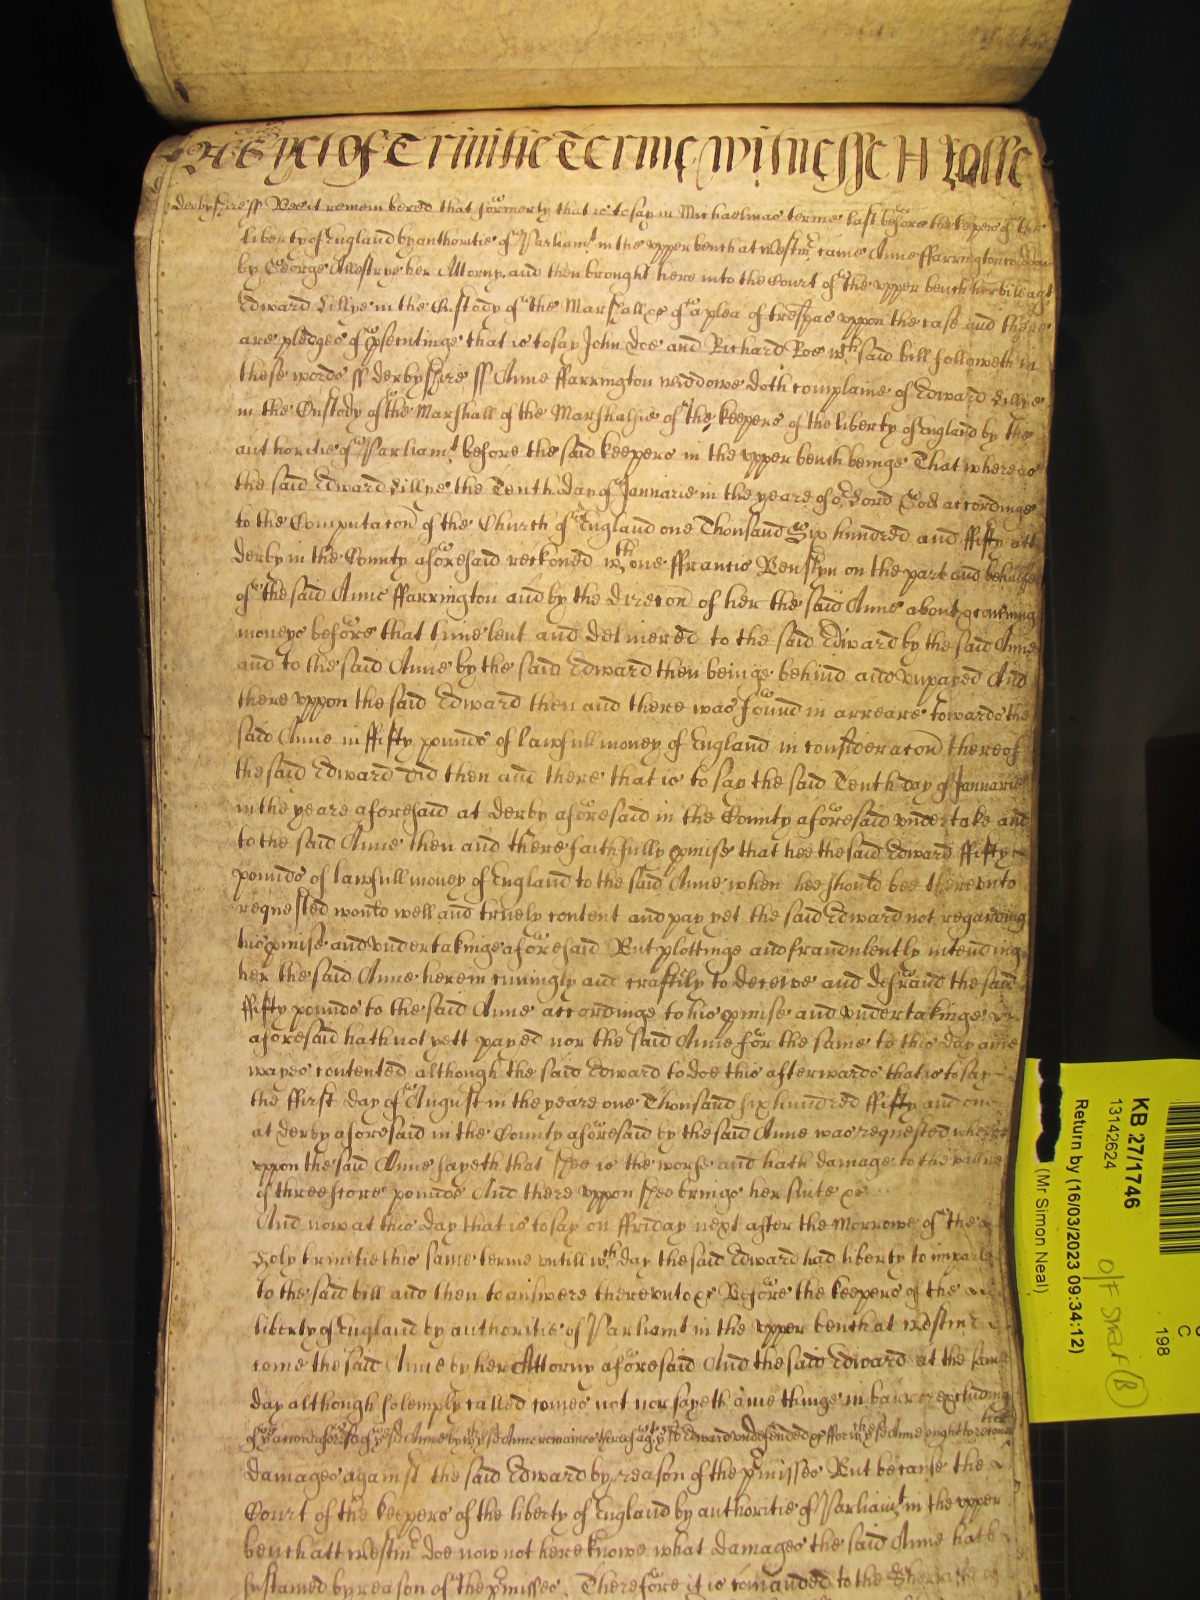 As yet of Trinitie Terme witnesse H Rolle
Derbyshire ss Bee it remembered that formerly that is to say in Michaelmas terme last before the keepers of the
liberty of England by authoritie of Parliamt in the upper bench at Westmr came Anne ffarrington widdow
by George Allestrye her Attorny and then brought here into the Court of the upper bench her bill agt
Edward Lillye in the Custody of the Marshall &c of a plea of trespas uppon the case and there
are pledges of psecutinge that is to say John Doe and Richard Roe wch said bill followeth in
these words ss Derbyshire ss Anne ffarrington widdowe doth complaine of Edward Lillye
in the Custody of the Marshall of the Marshalsie of the keepers of the liberty of England by the
authoritie of Parliamt before the said keepers in the upper bench beinge That whereas
the said Edward Lillye the Tenth day of Januarie in the yeare of or Lord God accordinge
to the Computacon of the Church of England one Thousand Six hundred and ffifty att
Derby in the County aforesaid reckoned wth one ffrancis Renshyn on the part and behalfe
of the said Anne ffarrington and by the direcon of her the said Anne about
moneys before that time lent and delivered to the said Edward by the said Anne
and to the said Anne by the said Edward then beinge behind and unpayed And
there uppon the said Edward then and there was found in arreare towards the
said Anne in ffifty pounds of lawfull money of England in consideracon thereof
the said Edward did then and there that is to say the said Tenth day of Januarie
in the yeare aforesaid at Derby aforesaid in the County aforesaid undertake and
to the said Anne then and there faithfully pmise that hee the said Edward ffifty
pounds of lawfull money of England to the said Anne when hee should bee thereunto
requested would well and truely content and pay yet the said Edward not regarding
his pmise and undertakinge aforesaid But plottinge and fraudulently intending
her the said Anne herein cuningly and craftily to deceive and defraud the said
ffifty pounds to the said Anne accordinge to his pmise and undertakinge
aforesaid hath not yett payed nor the said Anne for the same to this day anie
wayes contented although the said Edward to doe this afterwards that is to say
the ffirst day of August in the yeare one Thousand six hundred ffifty and one
at Derby aforesaid in the County aforesaid by the said Anne was requested where
uppon the said Anne sayeth that shee is the worse and hath damage to the value
of threescore pounds And there uppon shee brings her suite &c
And now at this day that is to say on ffriday next after the Morrowe of the
Holy trinitie this same terme untill wch day the said Edward had liberty to imparle
to the said bill and then to answere thereunto &c Before the keepers of the
liberty of England by authoritie of Parliamt in the upper bench at Westmr
come the said Anne by her Attorny aforesaid And the said Edward at the same
day although solemply called comes not nor sayeth anie thinge in barr or excluding
of ye action aforesd of ye sd Anne by wch ye sd Anne remaines thereof agt ye sd Edward undefended &c ffor wch ye sd Anne ought to recover her
damages against the said Edward by reason of the pmisses But because the
Court of the keepers of the liberty of England by authoritie of Parliamt in the upper
bench att Westmr doe now not here knowe what damages the said Anne hath
sustained by reason of the pmisses Therefore it is comanded to the Sherriffe
KB 27/1746
13142624
Return by (16/03/2023 09:34:12)
(Mr Simon Neal)
198
C